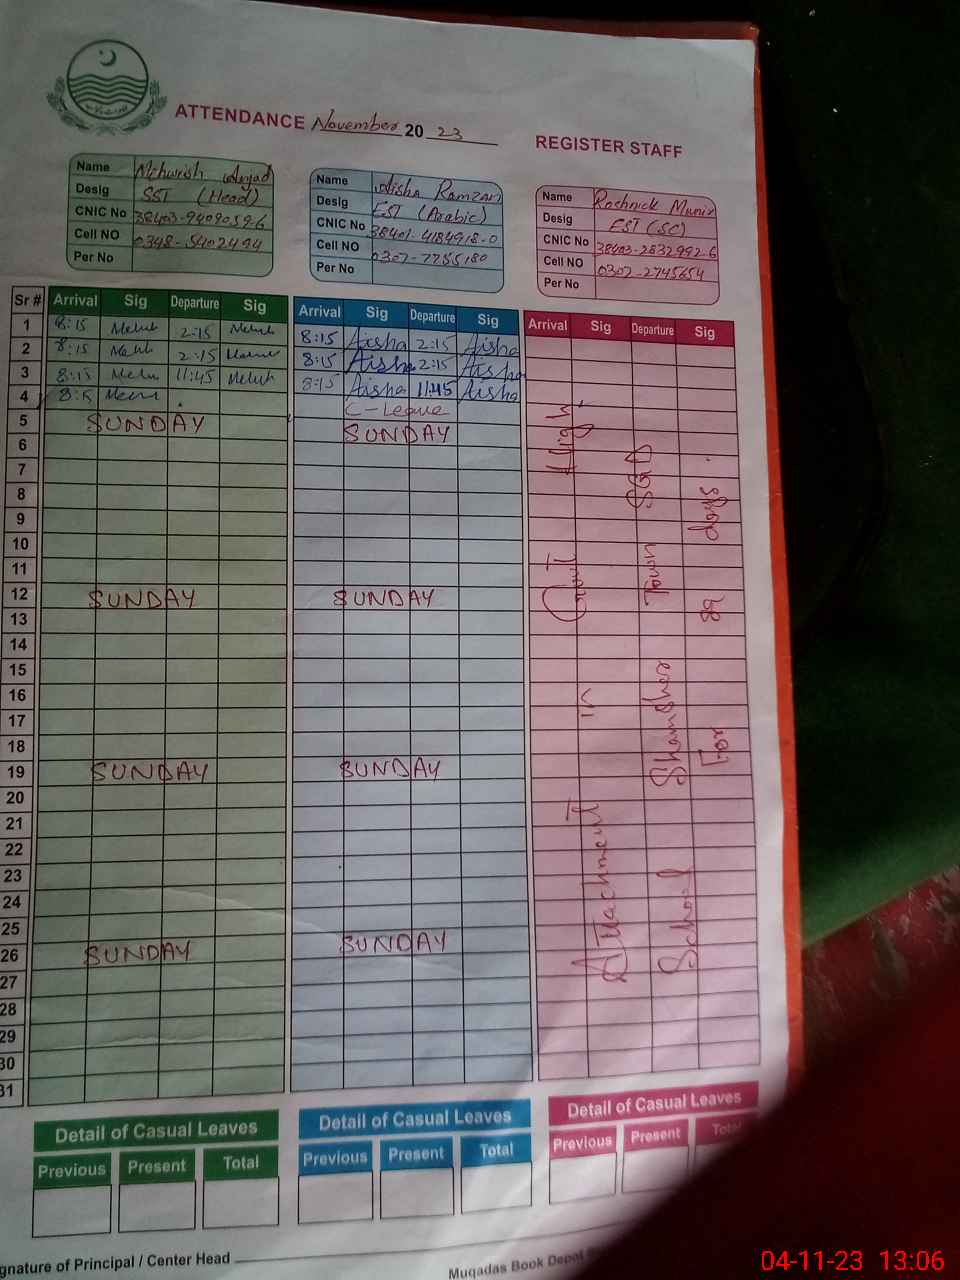 ATTENDANCE November 20 23
REGISTER STAFF
Name Mehwish Amjad
Desig SST (Head)
CNIC No 38403-9409059-6
Cell NO 0348-5402494
Per No
Name Aisha Ramzan
Desig EST (Arabic)
CNIC No 38401-4184918-0
Cell NO 0307-7755180
Per No
Name Roshnick Munir
Desig EST (SC)
CNIC No 38403-2832992-6
Cell NO 0302-2745654
Per No
Sr # Arrival Sig Departure Sig Arrival Sig Departure Sig Arrival Sig Departure Sig
1 8:15 2:15 8:15 Aisha 2:15 Aisha
2 8:15 2:15 8:15 Aisha 2:15 Aisha
3 8:15 11:45 8:15 Aisha 11:45 Aisha
4 8:15 C-Leave
5 SUNDAY SUNDAY
6
7
8
9
10
11
12 SUNDAY SUNDAY
13
14
15
16
17
18
19 SUNDAY SUNDAY
20
21
22
23
24
25
26 SUNDAY SUNDAY
27
28
29
30
31
Attachment in Govt High
School Shamsher Town SGD
For 89 days.
Detail of Casual Leaves
Previous Present Total
Detail of Casual Leaves
Previous Present Total
Detail of Casual Leaves
Previous Present Total
gnature of Principal / Center Head
Muqadas Book Depot
04-11-23 13:06